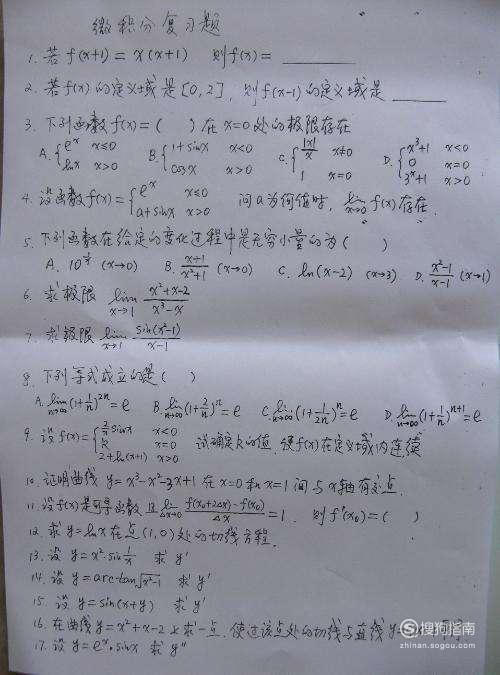 微积分复习题
1. 若 f(x+1) = x(x+1) 则 f(x) = ________
2. 若 f(x) 的定义域是 [0,2], 则 f(x-1) 的定义域是 ______
3. 下列函数 f(x) = ( ) 在 x=0 处的极限存在
A. { e^x x≤0 B. { 1+sinx x<0 C. { |x|/x x≠0 D. { x³+1 x<0
lnx x>0 cosx x>0 1 x=0 0 x=0
3^x+1 x>0
4. 设函数 f(x) = { e^x x≤0 问 a 为何值时, lim x→0 f(x) 存在.
a+sinx x>0
5. 下列函数在给定的变化过程中是无穷小量的为 ( )
A. 10^(1/x) (x→0) B. (x+1)/(x²+1) (x→0) C. ln(x-2) (x→3) D. (x²-1)/(x-1) (x→1)
6. 求极限 lim x→1 (x²+x-2)/(x³-x)
7. 求极限 lim x→1 sin(x²-1)/(x-1)
8. 下列等式成立的是 ( )
A. lim n→∞ (1+1/n)^2n = e B. lim n→∞ (1+2/n)^n = e C. lim n→∞ (1+1/2n)^n = e D. lim n→∞ (1+1/n)^n+1 = e
9. 设 f(x) = { 2/x sinx x<0
k x=0 试确定 k 的值, 使 f(x) 在定义域内连续
2+ln(x+1) x>0
10. 证明曲线 y = x³-x²-3x+1 在 x=0 和 x=1 间与 x 轴有交点.
11. 设 f(x) 是可导函数 且 lim Δx→0 (f(x₀+2Δx)-f(x₀))/Δx = 1, 则 f'(x₀) = ( )
12. 求 y=lnx 在点 (1,0) 处的切线方程.
13. 设 y = x²·sin 1/x 求 y'
14. 设 y = arc tan √(x²-1) 求 y'
15. 设 y = sin(x+y) 求 y'
16. 在曲线 y = x²+x-2 上求一点, 使过该点处的切线与直线 y
17. 设 y = e^x·sinx 求 y''
搜狗指南
zhinan.sogou.com